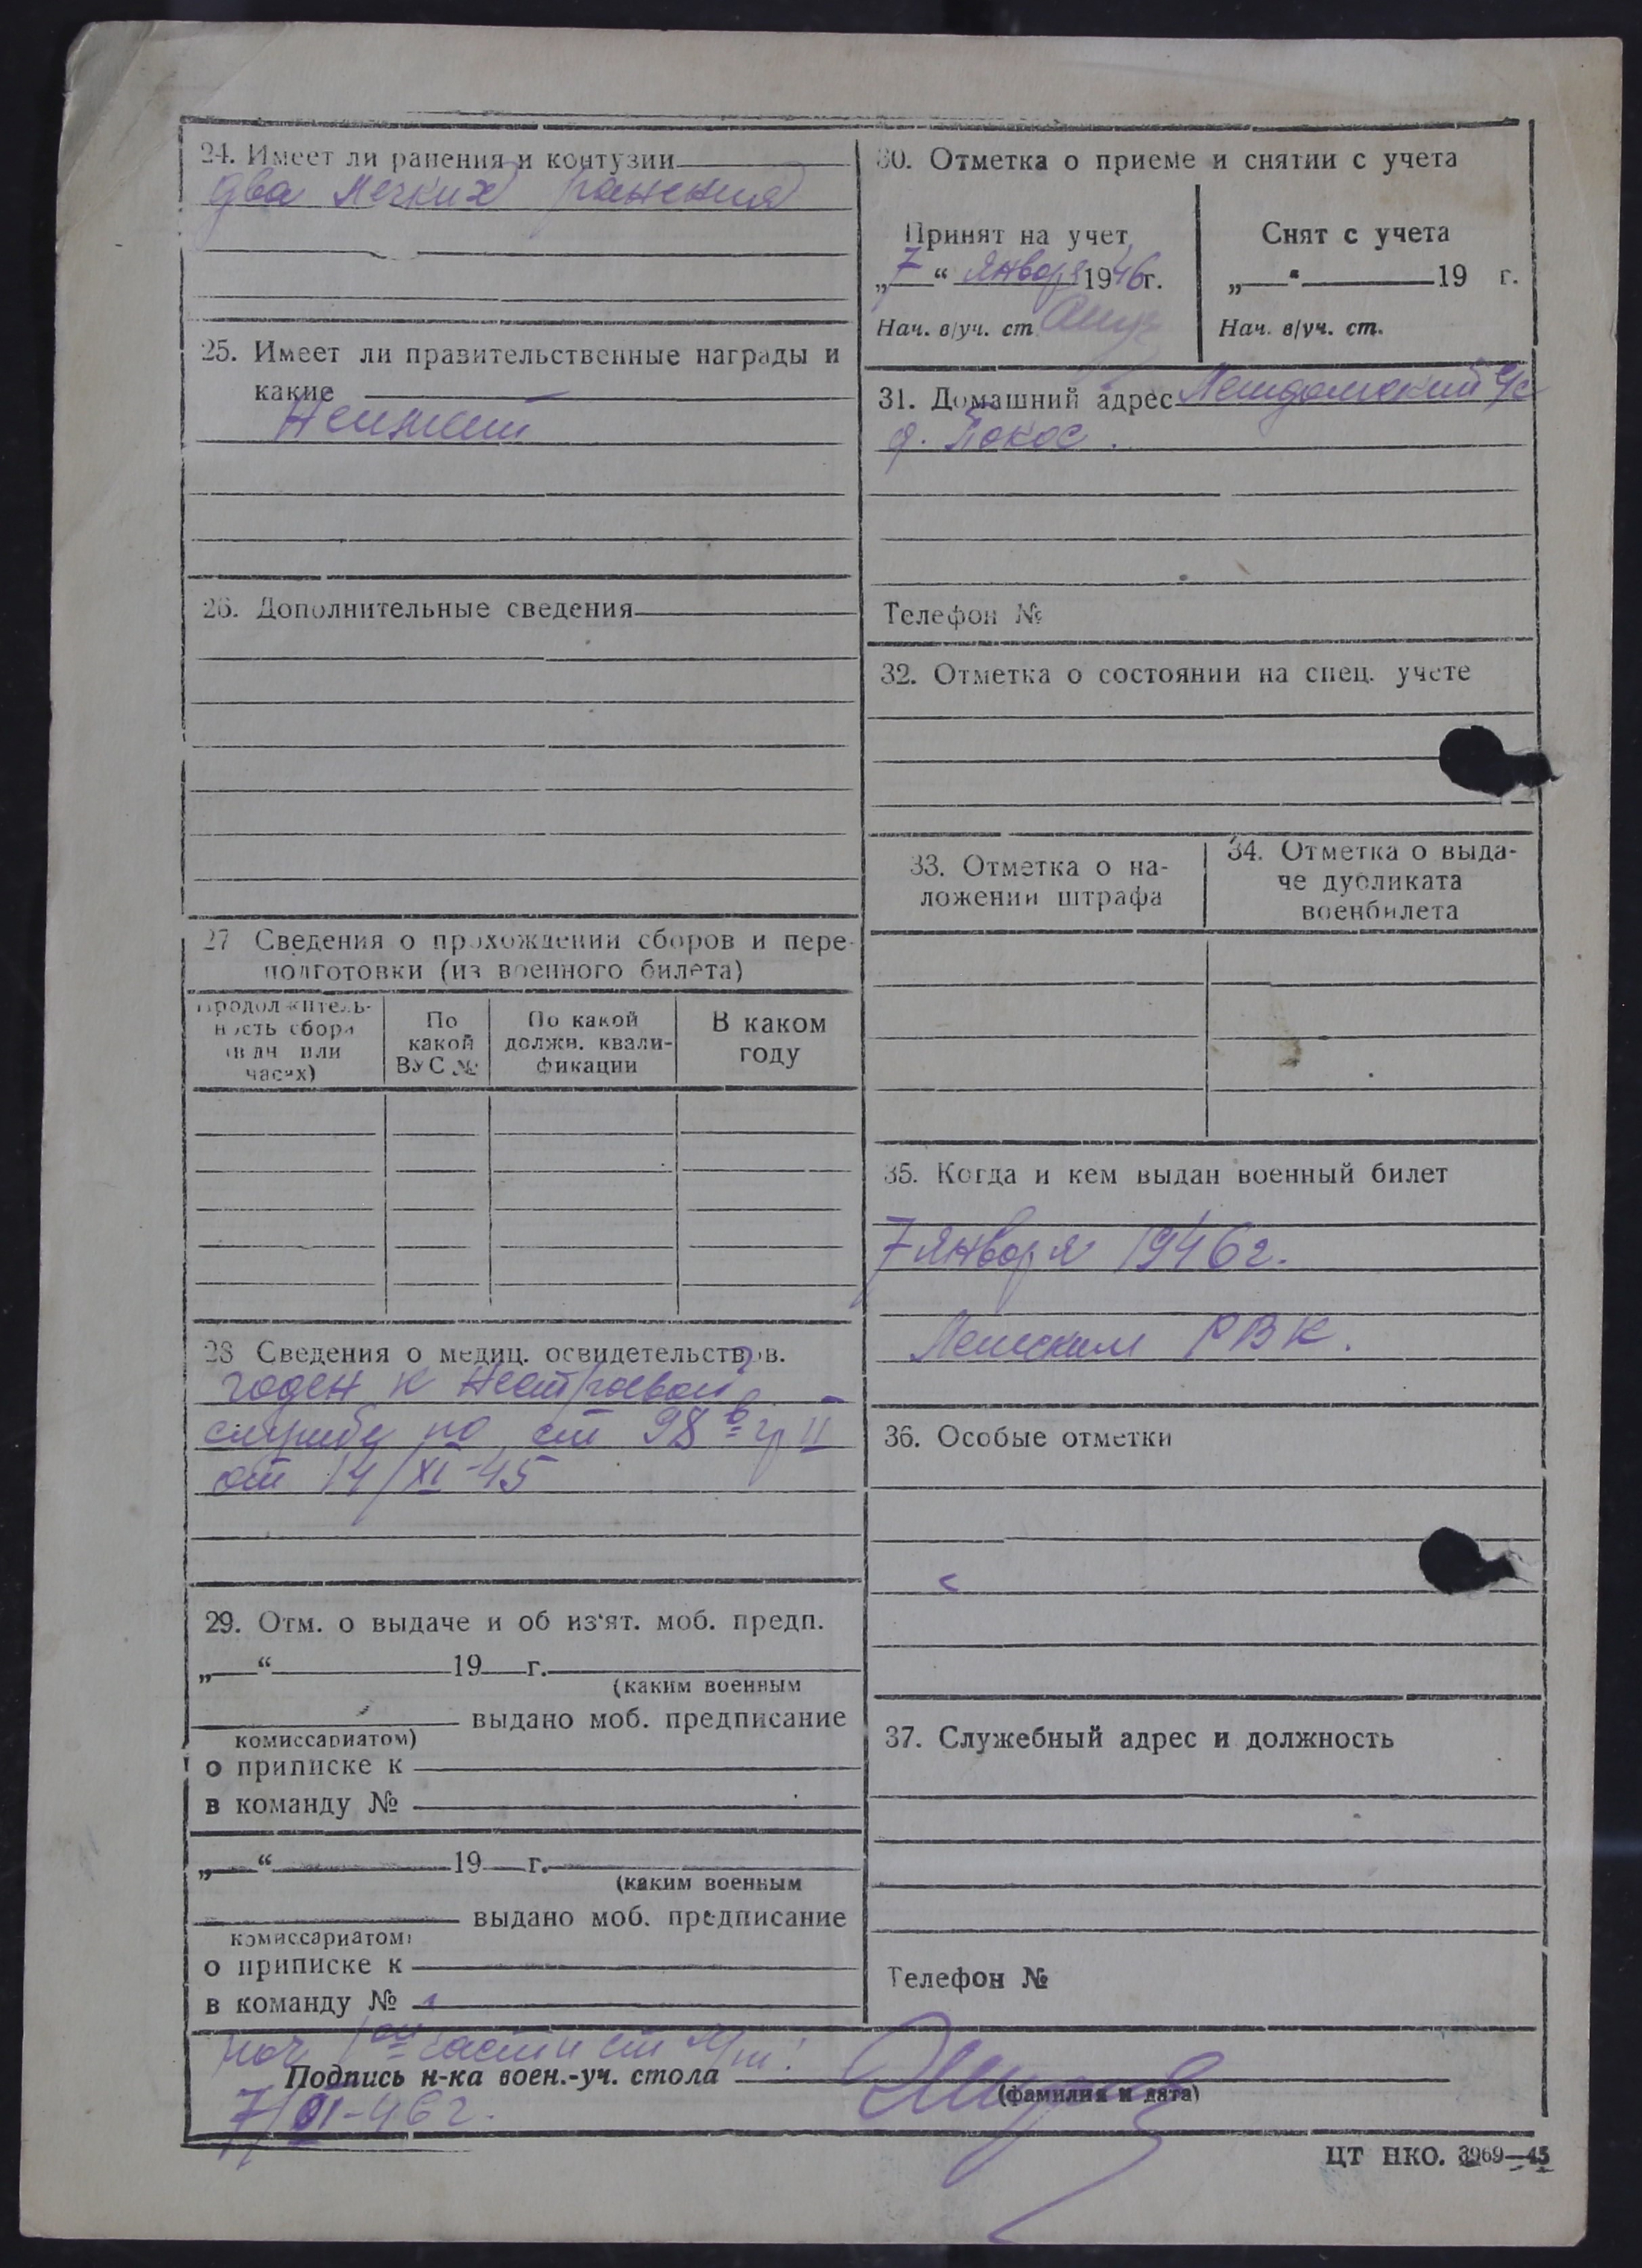 24. Имеет ли ранения и контузии
два легких ранения
25. Имеет ли правительственные награды и
какие
Неимеет
26. Дополнительные сведения
27 Сведения о прохождении сборов и пере-
подготовки (из военного билета)
Продолжитель-
ность сбора
(в дн или
часах)
По
какой
ВУС №
По какой
должн. квали-
фикации
В каком
году
28 Сведения о медиц. освидетельствов.
годен к нестроевой
службе по ст 98 в гр II
от 14/XI-45
29. Отм. о выдаче и об из'ят. моб. предп.
„ “ 19 г.
(каким военным
выдано моб. предписание
комиссариатом)
о приписке к
в команду №
„ “ 19 г.
(каким военным
выдано моб. предписание
комиссариатом)
о приписке к
в команду №
30. Отметка о приеме и снятии с учета
Принят на учет
„7“ января 1946г.
Нач. в/уч. ст
Снят с учета
„ “ 19 г.
Нач. в/уч. ст.
31. Домашний адрес с/с
д. Покос.
Телефон №
32. Отметка о состоянии на спец. учете
33. Отметка о на-
ложении штрафа
34. Отметка о выда-
че дубликата
военбилета
35. Когда и кем выдан военный билет
7 января 1946г.
Лешским РВК.
36. Особые отметки
37. Служебный адрес и должность
Телефон №
нач 1ой части ст
Подпись н-ка воен.-уч. стола
(фамилия и дата)
7/I-46г.
ЦТ НКО. 3969—45